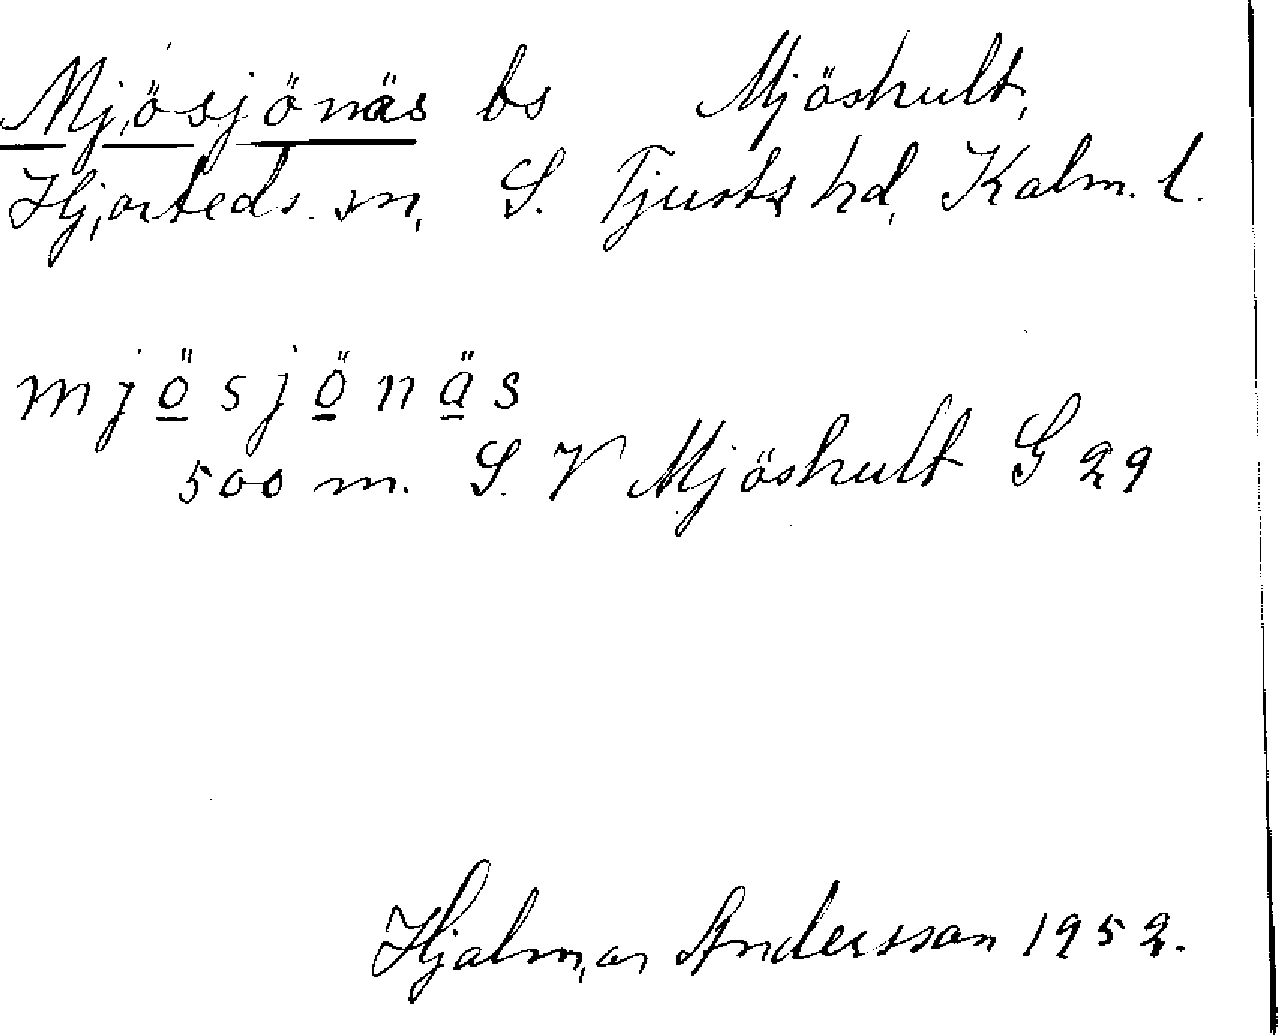 Mjösjönäs bs Mjöshult,
Hjorteds. sn, S. Tjusts hd, Kalm. l.
mjösjönäs
500 m. S. V Mjöshult G 29
Hjalmar Andersson 1952.